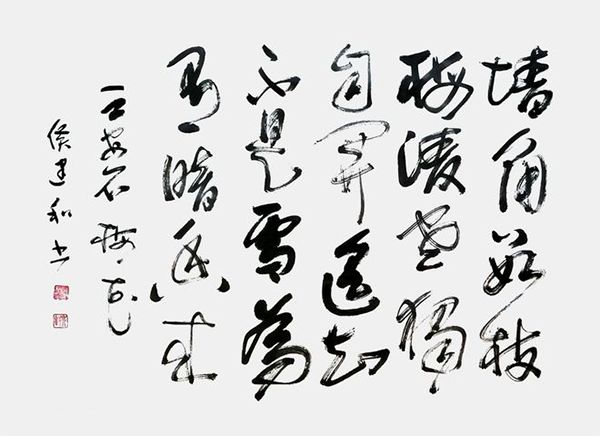 墙角数枝
梅凌寒獨
自開遥知
不是雪為
有暗香来
王安石梅花
侯建和书